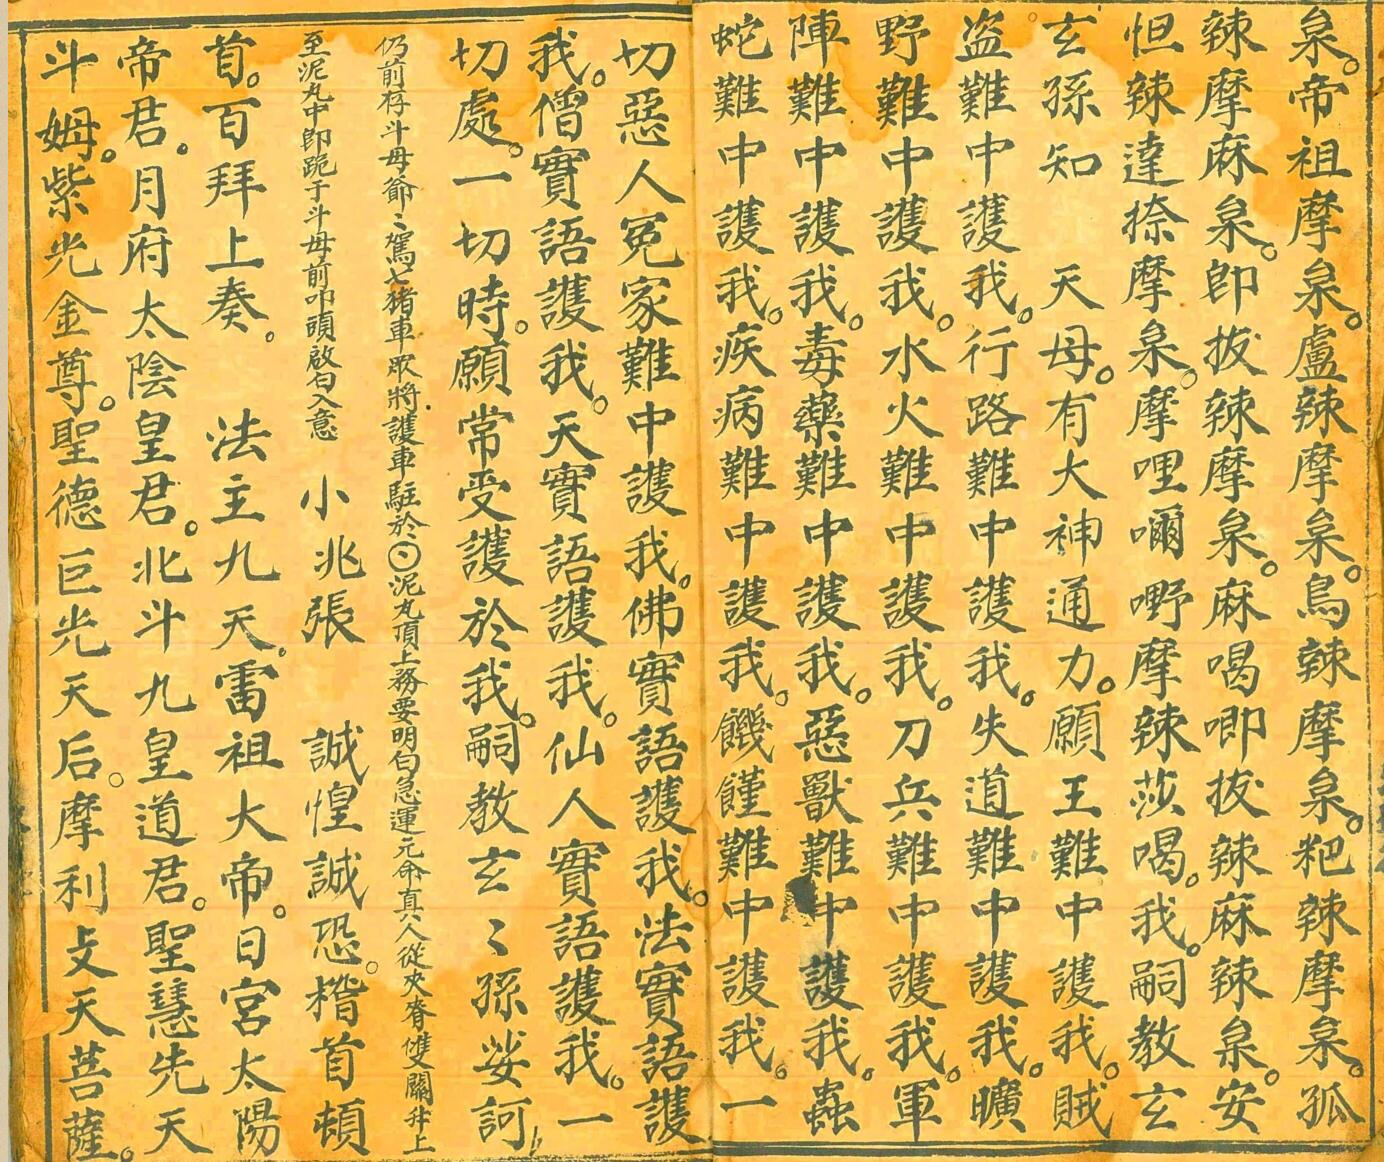 枲。帝祖摩枲。盧辣摩枲。鳥辣摩枲。粑辣摩枲。孤
辣摩麻枲。即拔辣摩枲。麻喝唧拔辣麻辣枲。安
怛辣達捺摩枲。摩哩嚩野摩辣莎喝。我。嗣教玄
玄孫知 天母。有大神通力。願王難中護我。賊
盜難中護我。行路難中護我。失道難中護我。曠
野難中護我。水火難中護我。刀兵難中護我。軍
陣難中護我。毒藥難中護我。惡獸難中護我。蟲
蛇難中護我。疾病難中護我。饑饉難中護我。一
切惡人冤家難中護我。佛實語護我。法實語護
我。僧實語護我。天實語護我。仙人實語護我。一
切處。一切時。願常受護於我。嗣教玄〻孫娑訶
仍前存斗母爺〻駕七猪車眾將護車駐於泥丸頂上務要明白急運元命真人從夾脊雙關升上
至泥丸中即跪于斗母前叩頭啟白入意 小兆張 誠惶誠恐。稽首頓
首。百拜上奏。 法主九天。雷祖大帝。日宮太陽
帝君。月府太陰皇君。北斗九皇道君。聖慧先天
斗姆。紫光金尊。聖德巨光天后。摩利攴天菩薩。